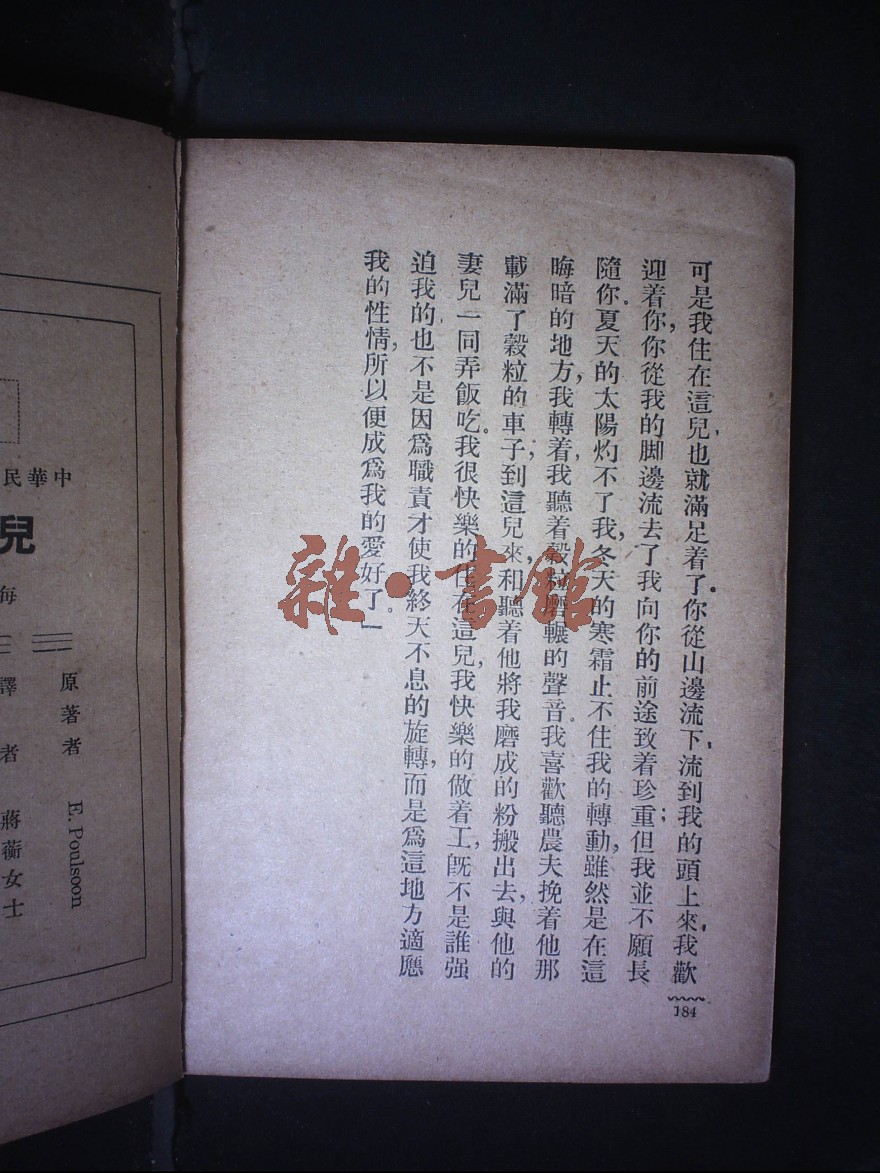 可是我住在這兒,也就滿足着了。你從山邊流下,流到我的頭上來,我歡
迎着你,你從我的脚邊流去了,我向你的前途致着珍重;但我並不願長
隨你。夏天的太陽灼不了我,冬天的寒霜止不住我的轉動,雖然是在這
晦暗的地方,我轉着,我聽着穀粒磨輾的聲音。我喜歡聽農夫挽着他那
載滿了穀粒的車子,到這兒來,和聽着他將我磨成的粉搬出去,與他的
妻兒一同弄飯吃。我很快樂的住在這兒,我快樂的做着工,旣不是誰强
迫我的,也不是因爲職責才使我終天不息的旋轉,而是爲這地方適應
我的性情,所以便成爲我的愛好了。」
184
雜·書館
中華民
兒
每
原著者 E. Poulsoon
譯者 蔣蘅女士